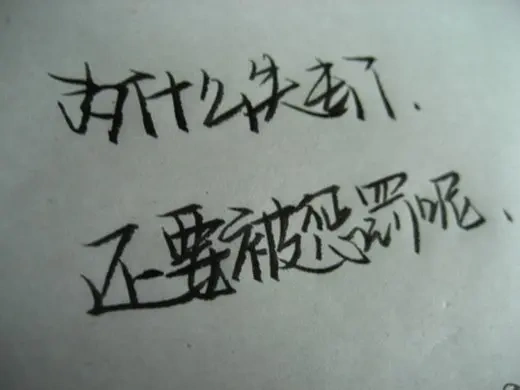 为什么失去了.
还要被惩罚呢、